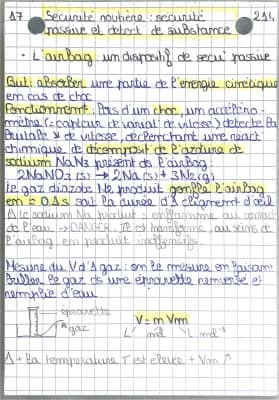 17 Sécurité routière : sécurité 214
passive et détort de substance
• L'airbag : un dispositif de sécu passive
But : absorber une partie de l'énergie cinétique
en cas de choc
Fonctionnemt : Lors d'un choc, un accéléro-
mètre (= capteur de variat° de vitesse) détecte la
brutale de vitesse, déclenchant une réact°
chimique de décomposit° de l'azoture de
sodium NaN3 présent ds l'airbag :
2NaNO3 (s) → 2Na (s) + 3N2 (g)
le gaz diazote N2 produit gonfle l'airbag
en ≈ 0,1s soit la durée d'1 clignemt d'œil
⚠ le sodium Na produit s'enflamme au contact
de l'eau → DANGER. Il est transformé, au sein de
l'airbag, en produit inoffensif
Mesure du V d'1 gaz : on le mesure en faisant
buller le gaz ds une éprouvette renversée et
remplie d'eau.
éprouvette
gaz
V = n Vm
L mol L mol-1
⚠ + la température T est élevée + Vm ↗